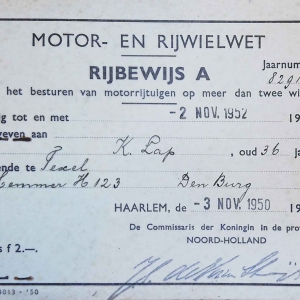 MOTOR- EN RIJWIELWET
RIJBEWIJS A
Jaarnum
8291
het besturen van motorrijtuigen op meer dan twee wi
ig tot en met -2 NOV. 1952 19
geven aan K. Lap, oud 36 ja
ende te Texel
H 123 Den Burg
HAARLEM, de -3 NOV. 1950 19
De Commissaris der Koningin in de prov
NOORD-HOLLAND
s f 2.—.